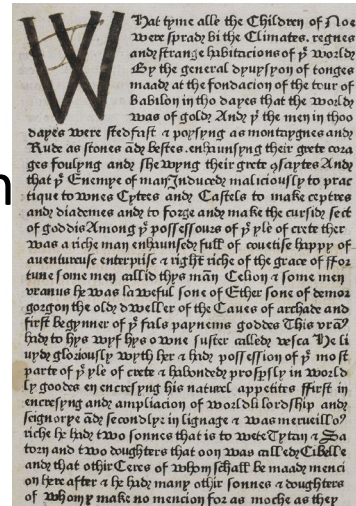 n
WHat tyme alle the Children of Noe
were sprad bi the Climates. regnes
and strange habitacions of yͤ world
By the general dyuysyon of tonges
maad at the fondacion of the tour of
Babilon in tho dayes that the world
was of gold And yͭ the men in thoo
dayes were stedfast & poysyng as montaygnes and
Rude as stones ād bestes. enhaunsyng their grete cora
ges foulyng and shewyng their grete Ꝯsaytes And
that yͤ Enemye of man Induced maliciously to prac
tique townes Cytees and Castels to make ceptres
and diademes and to forge and make the curside sect
of goddis Among yͤ possessours of yͤ yle of crete ther
was a riche man enhaunsed full of couetise happy of
auentureuse enterprise & right riche of the grace of ffor
tune some men callid thys mān Celion & some men
vranus he was laweful sone of Ether sone of demor
gorgon the old dweller of the Caues of archade and
first begynner of yͤ fals paynems goddes This vran̄
had to hys wyf hys owne suster called vesca He li
uyd gloriously wyth her & had possession of yͤ most
parte of yͤ yle of crete & habonded prospsly in world
ly goodes en encresyng his naturel appetites ffirst in
encresyng and ampliacion of worldli lordship and
seignorye ād secondly in lignage & was merueillo9
riche he had two sonnes that is to wete Tytan & Sa
torn and two doughters that oon was called Cibelle
and that othir Ceres of whom schall be maad menci
on here after & he had many othir sonnes & doughters
of whom y make no mencion for as moche as they